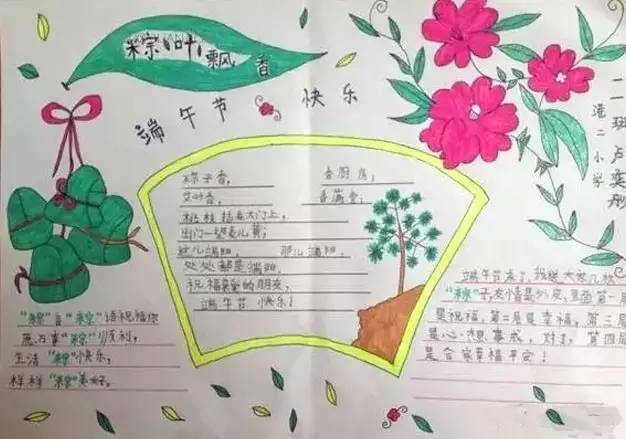 粽叶飘香
端午节 快乐
二一班 卢奕彤
港二小学
粽子香， 香厨房；
艾叶香， 香满堂；
桃枝插在大门上，
出门一望麦儿黄；
这儿端阳， 那儿端阳，
处处都是端阳。
祝福亲爱的朋友，
端午节 快乐！
"粽"言"粽"语祝福你
愿万事"粽"顺利，
生活"粽"快乐，
样样"粽"美好。
端午节来了，我送大家几状
"粽"子，友情是外皮，里面第一层
是祝福，第二层是幸福，第三层
是心想事成，对了，第四层
是合家幸福平安！